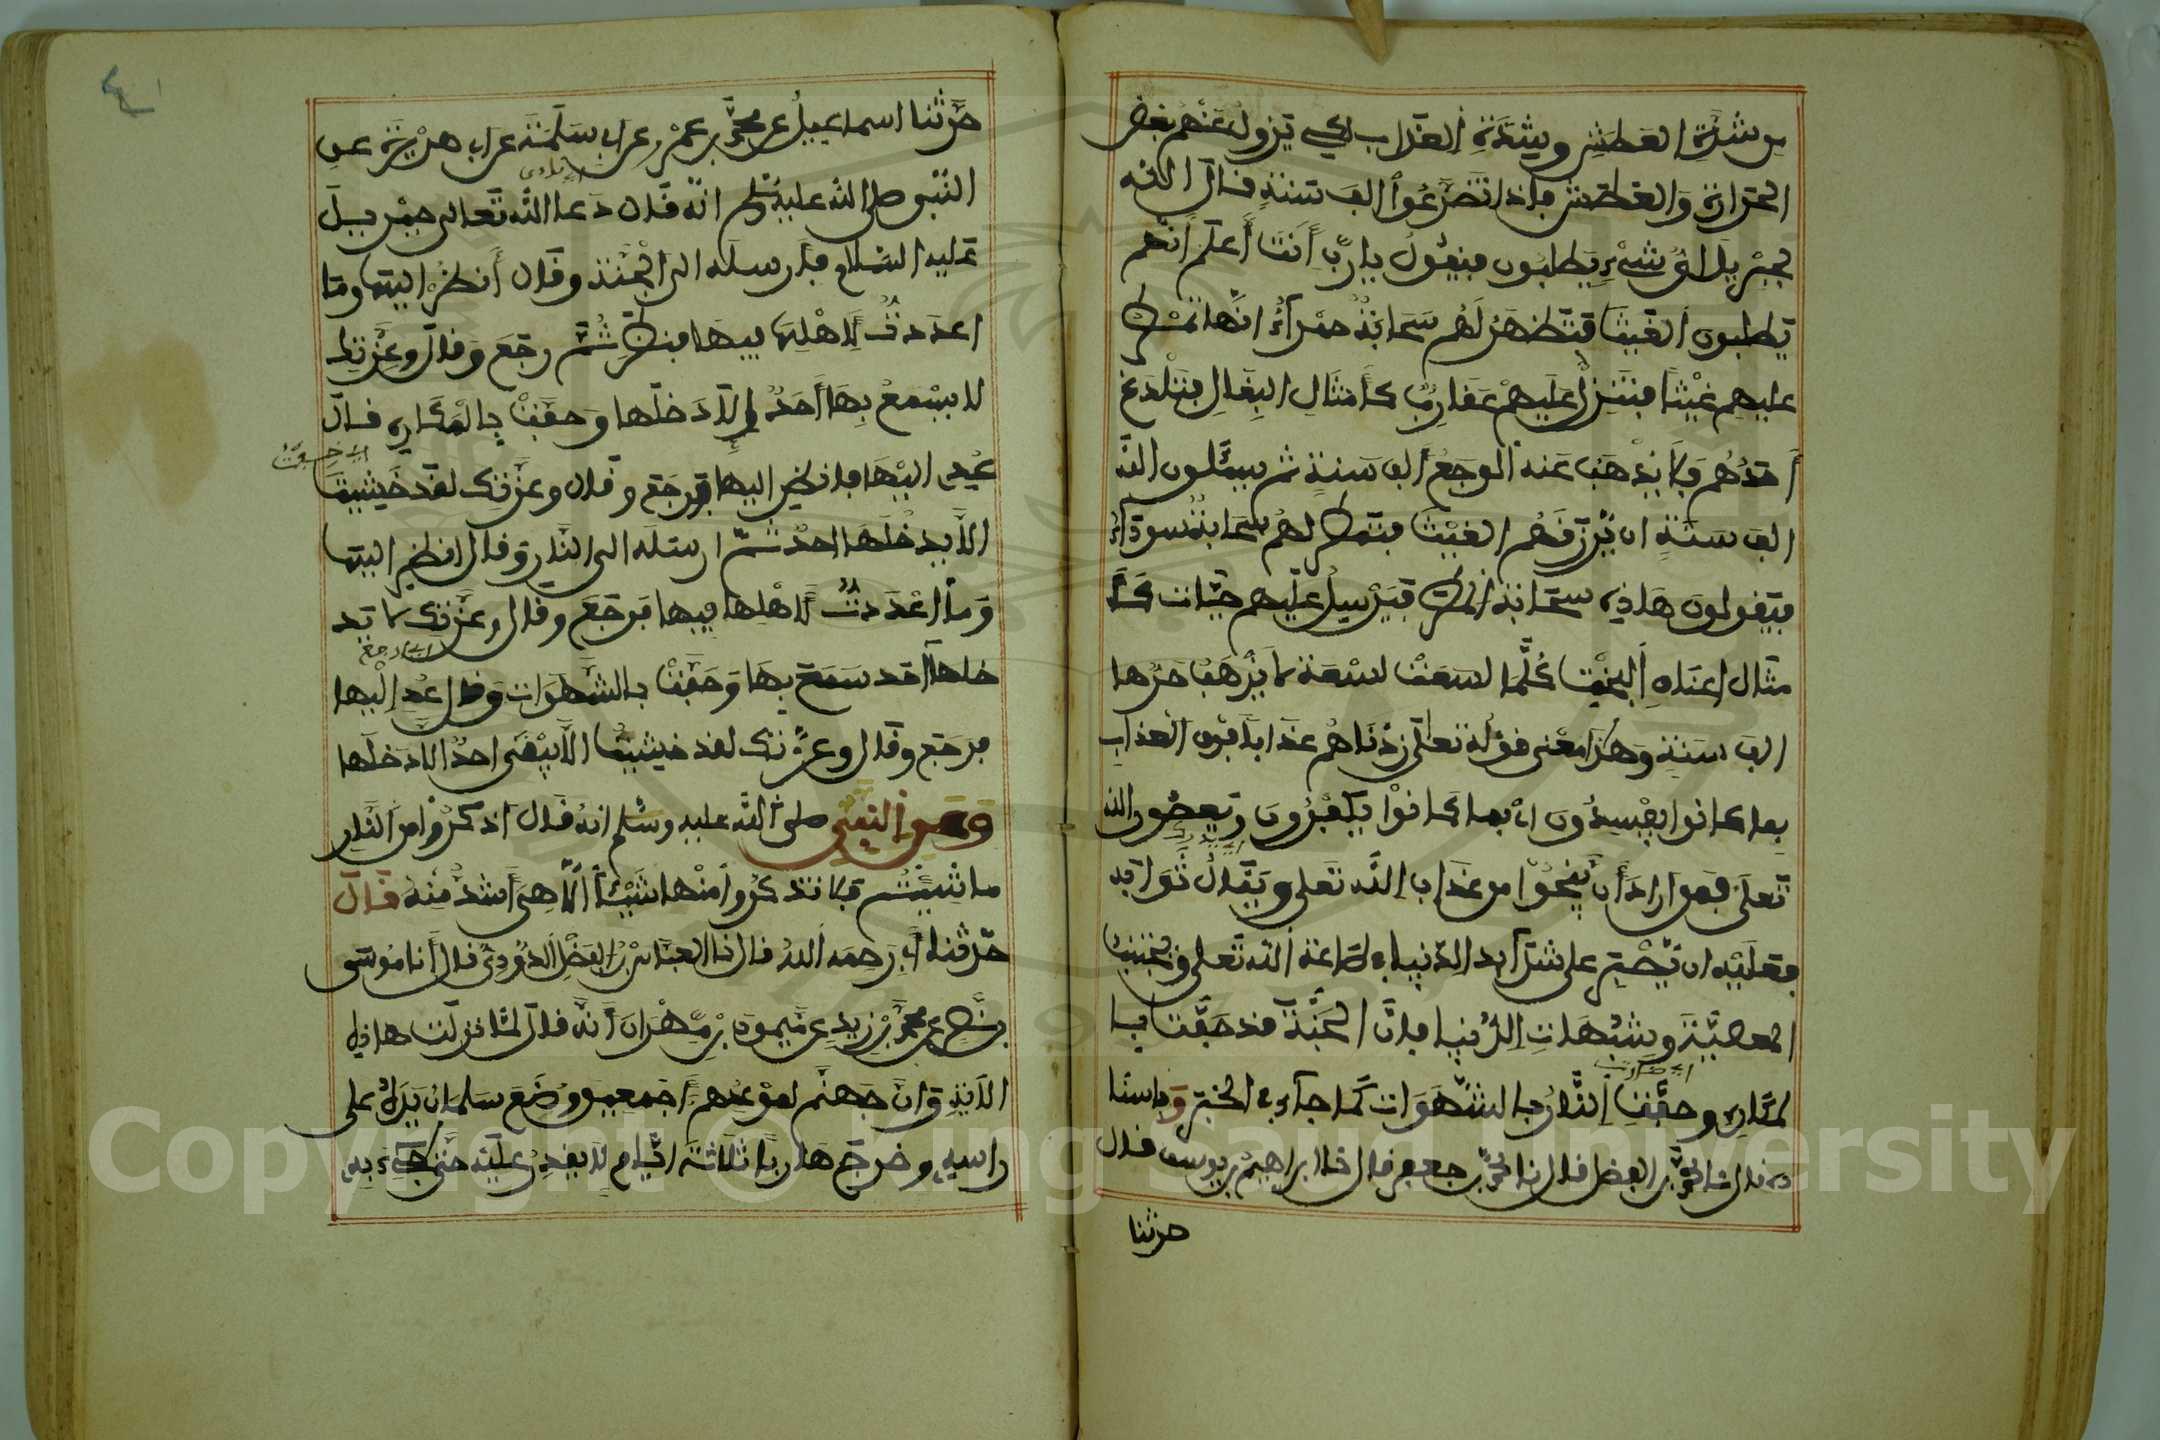 من شدة العطش وشدة العذاب لكي تزول عنهم بعض
الحرارة والعطش فاذا تضرعوا الف سنة قال الله
لجبريل اي شيء يطلبون فيقول يا رب أنت أعلم أنهم
يطلبون الغيث فتظهر لهم سحابة حمراء انها تمطر
عليهم غيثا فتنزل عليهم عقارب كأمثال البغال فتلدغ
أحدهم فلا يذهب عنه الوجع ألف سنة ثم يسئلون الله
الف سنة ان يرزقهم الغيث فتظهر لهم سحابة سوداء
فيقولون هاذه سحابة المطر فيرسل عليهم حيات كأ
مثال اعناق البخت كلما لسعت لسعة لا يذهب حرها
الف سنة وهذا معنى قوله تعلى زدناهم عذابا فوق العذاب
بما كانوا يفسدون اي بما كانوا يكفرون ويعصون الله
تعلى فمن اراد أن ينجوا من عذاب الله تعلى وينال ثوابه
فعليه ان يصبر على شدآيد الدنيا في طاعة الله تعلى ويجتنب
المعصية وشهوات الدنيا فان الجنة قد حفت با
لمكاره وحفت النار بالشهوات كما جآء في الخبر وباسنا
ده قال نا محمد بن الفضل قال نا محمد بن جعفر قال نا ابراهيم بن يوسف قال
حدثنا
حدثنا اسماعيل عن محمد بن عمر عن ابي سلمة عن ابي هريرة عن
النبي صلى الله عليه وسلم انه قال دعا الله تعالى جبريل
عليه السلام فأرسله الى الجنة وقال أنظر اليها وما
اعددت لاهلها فيها فنظر ثم رجع وقال وعزتك
لا يسمع بها أحد إلا دخلها وحفت بالمكاره فقال
عد اليها فانظر اليها فرجع وقال وعزتك لقد خشيت
اي خفت
الا يدخلها احد ثم ارسله الى النار وقال انظر اليها
وما اعددت لاهلها فيها فرجع وقال وعزتك لا يد
اي ارجع
خلها أحد سمع بها وحفت بالشهوات وقال عد إليها
فرجع وقال وعزتك لقد خشيت الا يبقى احد الا دخلها
وعن النبي صلى الله عليه وسلم انه قال اذكروا من النار
ما شيئتم فلا تذكروا منها شيئا الا هي أشد منه قال
حدثنا أبي رحمه الله قال نا العباس بن الفضل الدوري قال أنا موسى
بن نصر عن محمد بن زيد عن ميمون بن مهران أنه قال لما نزلت هاذه
الآية وان جهنم لموعدهم أجمعين وضع سلمان يده على
راسه وخرج هاربا ثلاثة ايام لا يقدر عليه حتى جيء به